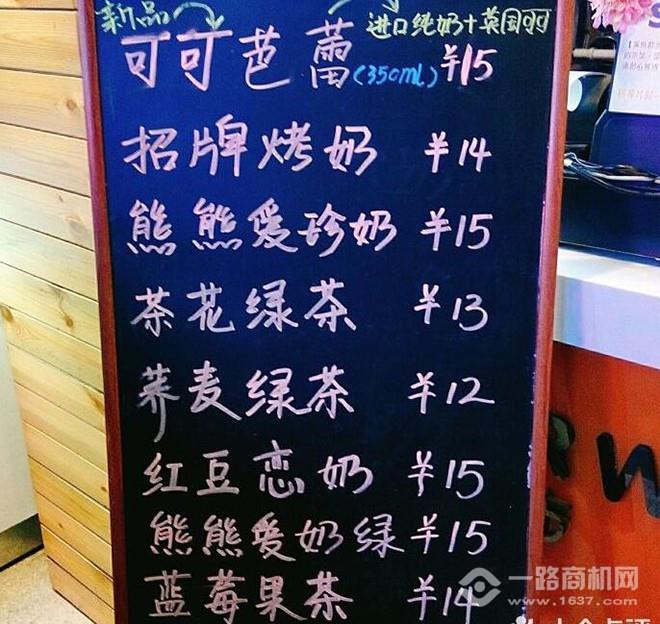 新品 进口纯奶+英国可可
可可芭蕾(350ml) ¥15
招牌烤奶 ¥14
熊熊爱珍奶 ¥15
茶花绿茶 ¥13
荞麦绿茶 ¥12
红豆恋奶 ¥15
熊熊爱奶绿 ¥15
蓝莓果茶 ¥14
一路商机网
www.1637.com